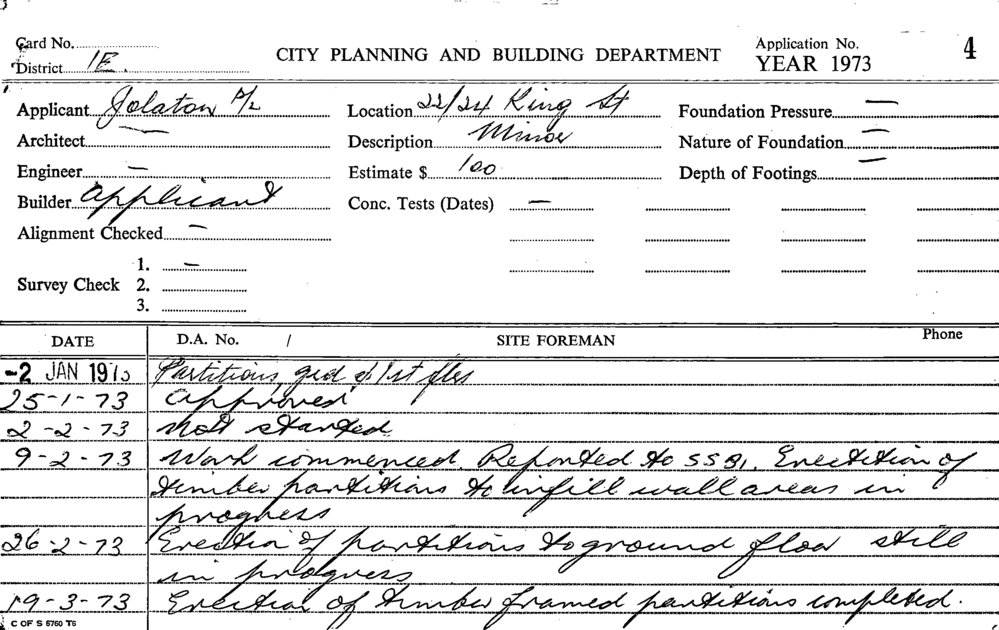 Card No.
District 1E.
CITY PLANNING AND BUILDING DEPARTMENT
Application No.
YEAR 1973
4
Applicant Jolaton P/L
Location 22/24 King St
Foundation Pressure —
Architect —
Description Minor
Nature of Foundation —
Engineer —
Estimate $ 100
Depth of Footings —
Builder Applicant
Conc. Tests (Dates) —
Alignment Checked —
Survey Check 1. —
2.
3.
DATE D.A. No. / SITE FOREMAN Phone
-2 JAN 1973 Partitions grd & 1st flrs
25-1-73 Approved
2-2-73 Not started
9-2-73 Work commenced. Reported to SSBI. Erectition of
timber partitions to infill wall areas in
progress
26-2-73 Erection of partitions to ground floor still
in progress
19-3-73 Erection of timber framed partitions completed.
C OF S 6760 T6